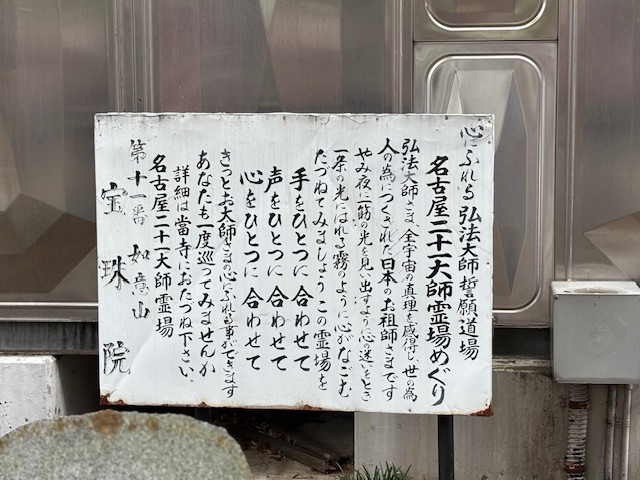 心にふれる 弘法大師誓願道場
名古屋二十一大師霊場めぐり
弘法大師さま 全宇宙の真理を感得し 世の為
人の為につくされた 日本のお祖師さまです
やみ夜に一筋の光を見い出すよう 心の迷いをとき
一条の光にはれる霧のように 心がなごむ
たづねてみましょう この霊場を
手をひとつに 合わせて
声をひとつに 合わせて
心をひとつに 合わせて
きっとお大師さまの心にふれる事ができます
あなたも一度巡ってみませんか
詳細は當寺におたづね下さい。
名古屋二十一大師霊場
第十一番 如意山
宝珠院